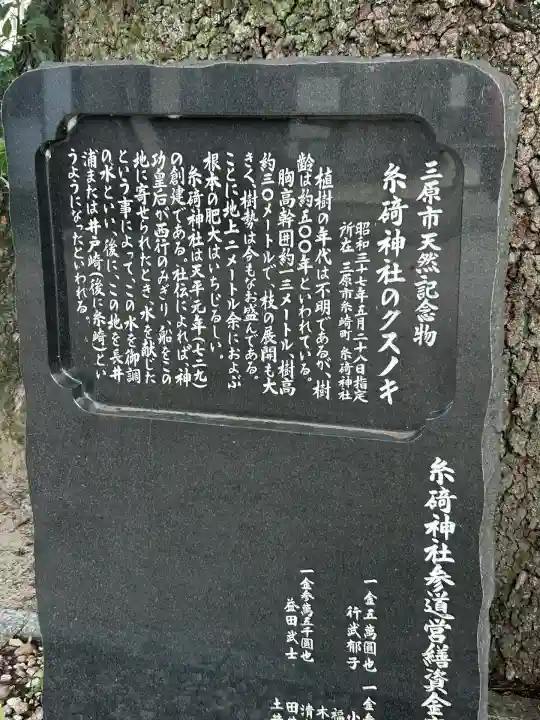 三原市天然記念物
糸碕神社のクスノキ
昭和三十七年五月二十八日指定
所在 三原市糸崎町 糸碕神社
植樹の年代は不明であるが、樹
齢は約五〇〇年といわれている。
胸高幹囲約一三メートル、樹高
約三〇メートルで、枝の展開も大
きく、樹勢は今もなお盛んである。
ことに地上二メートル余におよぶ
根本の肥大はいちじるしい。
糸碕神社は天平元年(七二九)
の創建である。社伝によれば、神
功皇后が西行のみぎり、船をこの
地に寄せられたとき、水を献じた
という事によって、この水を御調
の水といい、後に、この地を長井
浦または井戸崎(後に糸崎)とい
うようになったといわれる。
糸碕神社参道営繕資金
一金五萬圓也
行武郁子
一金参萬五千圓也
益田武士
一金